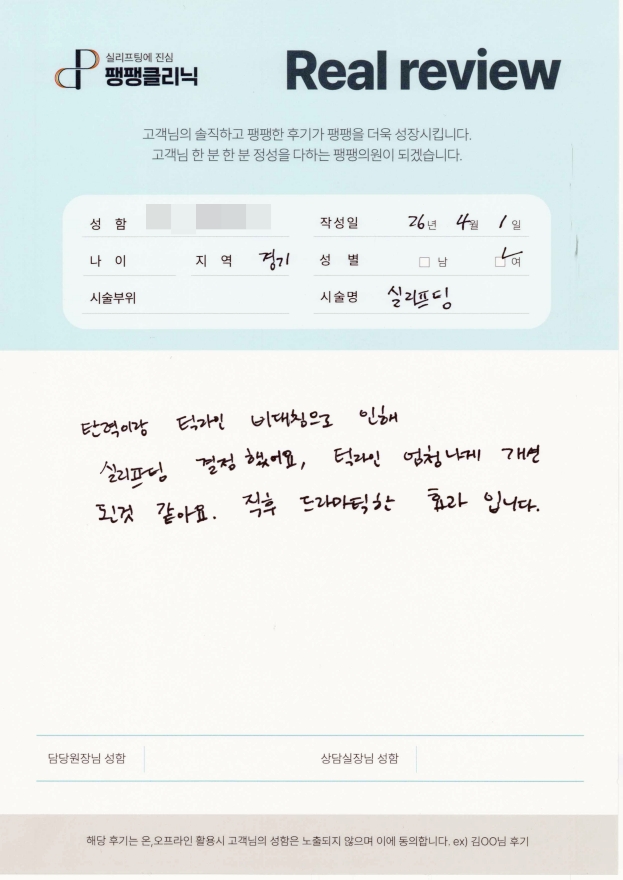 실리프팅에 진심
팽팽클리닉
Real review
고객님의 솔직하고 팽팽한 후기가 팽팽을 더욱 성장시킵니다.
고객님 한 분 한 분 정성을 다하는 팽팽의원이 되겠습니다.
성 함 작성일 26년 4월 1일
나 이 지 역 경기 성 별 남 여
시술부위 시술명 실리프팅
탄력이랑 턱라인 비대칭으로 인해
실리프팅 결정했어요, 턱라인 엄청나게 개선
된것 같아요. 직후 드라마틱한 효과 입니다.
담당원장님 성함 상담실장님 성함
해당 후기는 온,오프라인 활용시 고객님의 성함은 노출되지 않으며 이에 동의합니다. ex) 김OO님 후기